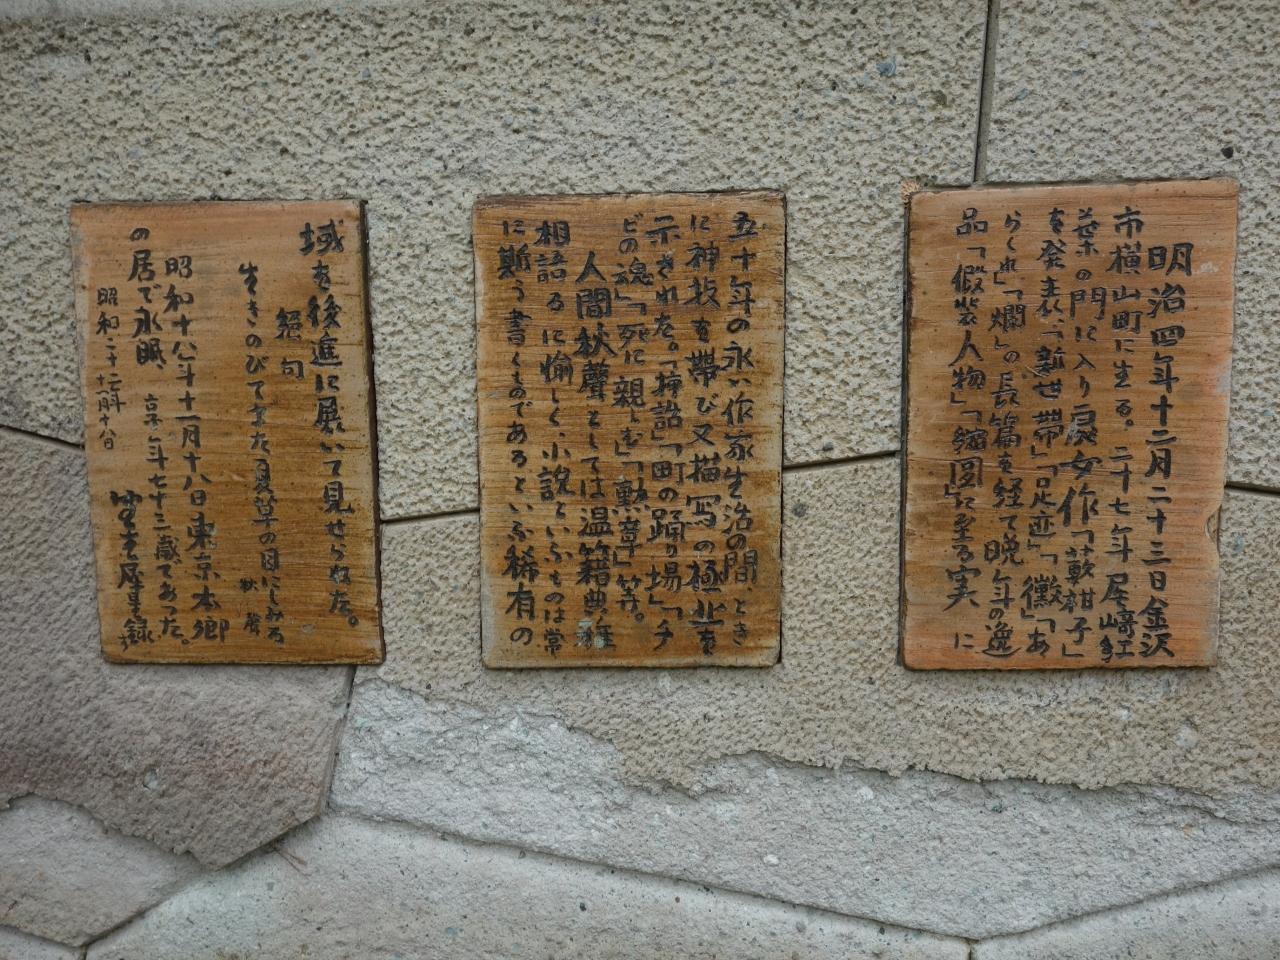 明治四年十二月二十三日金沢
市横山町に生る。二十七年尾崎紅
葉の門に入り處女作「藪柑子」
を発表、「新世帯」「足迹」「黴」「あ
らくれ」「爛」の長篇を経て晩年の逸
品「假装人物」「縮圖」に至る実に
五十年の永い作家生活の間、とき
に神技を帯び又描写の極北を
示された。「挿話」「町の踊り場」「チ
ビの魂」「死に親しむ」「勲章」等。
人間秋聲としては温籍典雅
相語るに愉しく、小説といふものは常
に斯う書くものであるといふ稀有の
域を後進に展いて見せられた。
絕句
生きのびてまた夏草の目にしみる
秋聲
昭和十八年十一月十八日東京本郷
の居で永眠、享年七十三歳であつた。
昭和二十二年
十一月十八日
室生犀星錄